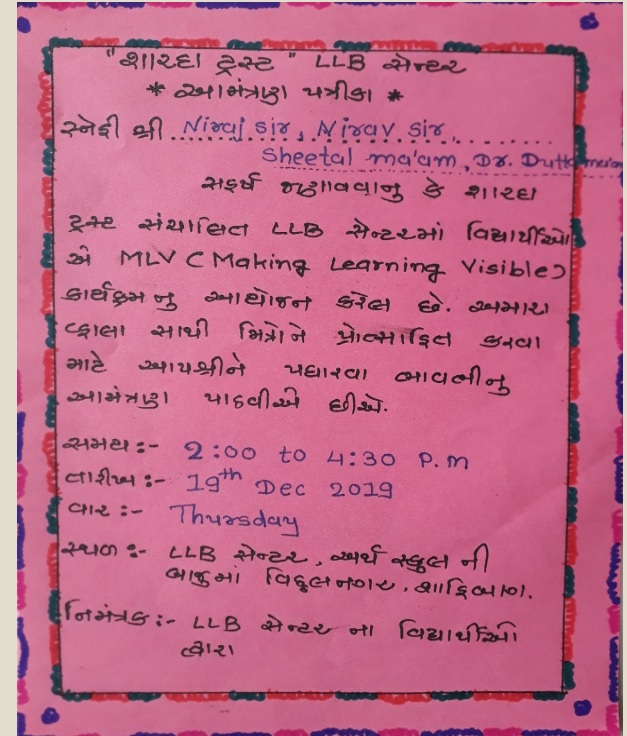 "શારદા ટ્રસ્ટ" LLB સેન્ટર
* આમંત્રણ પત્રીકા *
સ્નેહી શ્રી Niraj sir, Nirav sir,
Sheetal ma'am, Dr. Dutta ma'am
સહર્ષ જણાવવાનુ કે શારદા
ટ્રસ્ટ સંચાલિત LLB સેન્ટરમાં વિદ્યાર્થીઓ
એ MLV (Making Learning Visible)
કાર્યક્રમ નુ આયોજન કરેલ છે. અમારા
વ્હાલા સાથી મિત્રોને પ્રોત્સાહિત કરવા
માટે આપશ્રીને પધારવા બાબતનુ
આમંત્રણ પાઠવીએ છીએ.
સમય :- 2:00 to 4:30 P.m
તારીખ :- 19th Dec 2019
વાર :- Thursday
સ્થળ :- LLB સેન્ટર, અર્થ સ્કુલ ની
બાજુમાં વિઠ્ઠલનગર, શાહિબાગ.
નિમંત્રક :- LLB સેન્ટર ના વિદ્યાર્થીઓ
દ્વારા